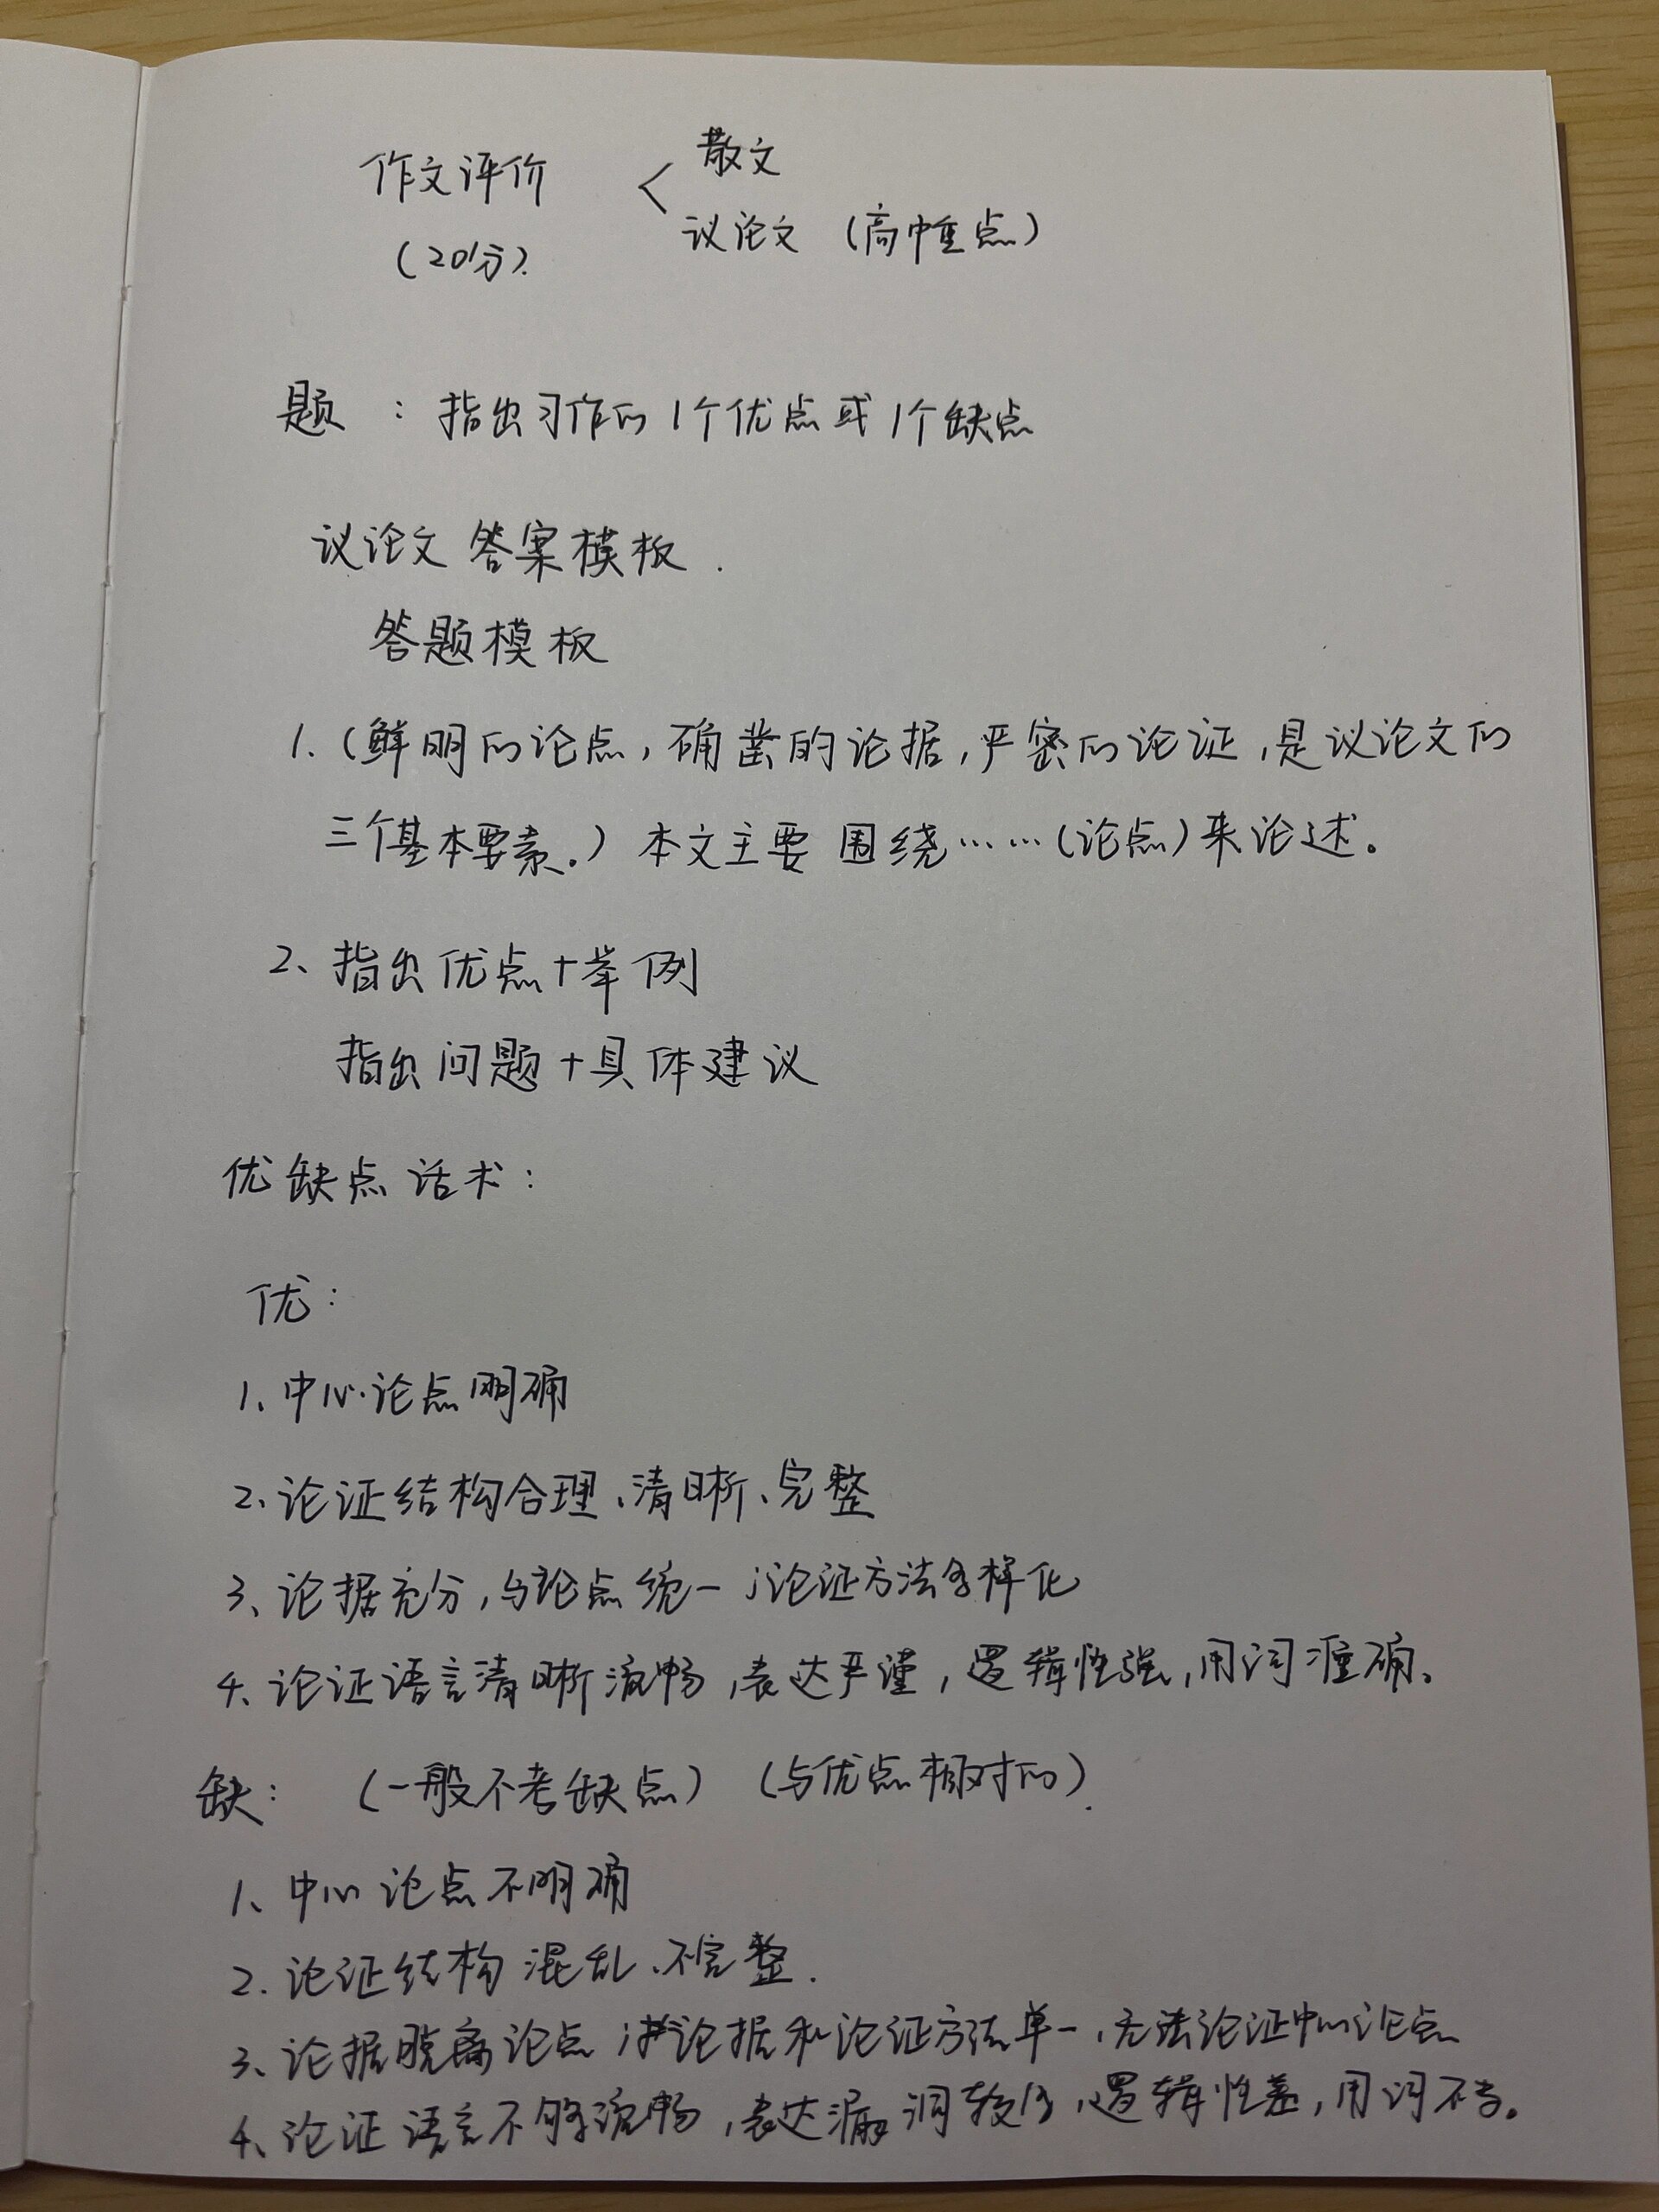 作文评价 < 散文
议论文 (高中重点)
(20分).
题 : 指出习作的1个优点或1个缺点
议论文 答案模板.
答题模板
1. (鲜明的论点, 确凿的论据, 严密的论证, 是议论文的
三个基本要素.) 本文主要 围绕……(论点)来论述。
2、指出优点+举例
指出问题+具体建议
优缺点 话术:
优:
1、中心论点明确
2、论证结构合理、清晰、完整
3、论据充分, 与论点统一; 论证方法多样化
4、论证语言清晰流畅, 表达严谨, 逻辑性强, 用词准确。
缺: (一般不考缺点) (与优点相对的).
1、中心论点不明确
2. 论证结构 混乱、不完整.
3、论据脱离论点; 论据和论证方法单一, 无法论证中心论点
4、论证语言不够流畅, 表达漏洞较多, 逻辑性差, 用词不当。